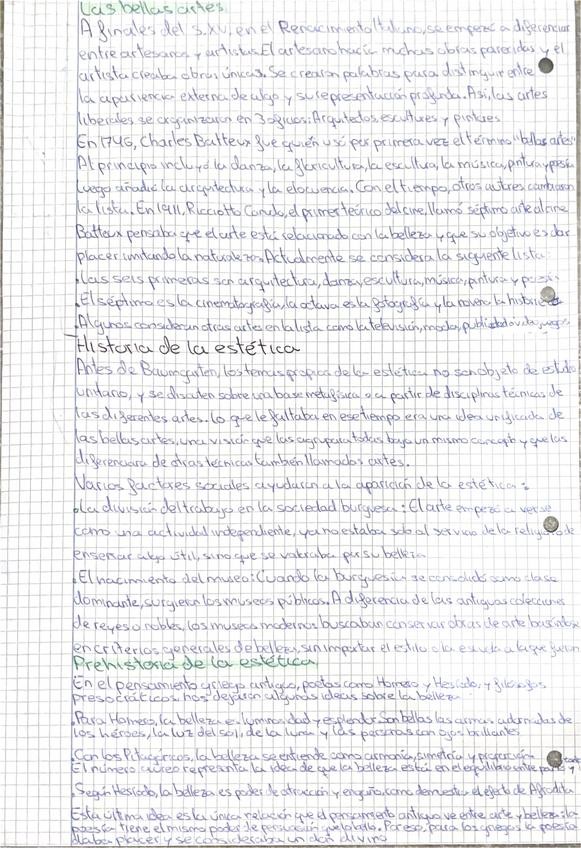 Las bellas artes
A finales del S.XV, en el Renacimiento Italiano, se empezó a diferenciar
entre artesanos y artistas. El artesano hacía muchas obras parecidas y el
artista creaba obras únicas. Se crearon palabras para distinguir entre
la apariencia externa de algo y su representación profunda. Así, las artes
liberales se organizaron en 3 oficios: Arquitectos, escultores y pintores
En 1746, Charles Batteux fue quién usó por primera vez el término "bellas artes"
Al principio incluyó la danza, la floricultura, la escultura, la música, pintura y poesía
luego añadió la arquitectura y la elocuencia. Con el tiempo, otros autores cambiaron
la lista. En 1911, Ricciotto Canudo, el primer teórico del cine, llamó séptimo arte al cine
Batteux pensaba que el arte está relacionado con la belleza y que su objetivo es dar
placer imitando la naturaleza. Actualmente se considera la siguiente lista:
· Las seis primeras son arquitectura, danza, escultura, música, pintura y poesía
· El séptimo es la cinematografía, la octava es la fotografía y la novena la
· Algunos consideran otras artes en la lista como la televisión, moda, publicidad
Historia de la estética
Antes de Baumgarten, los temas propios de la estética no son objeto de estudio
unitario, y se discuten sobre una base metafísica o a partir de disciplinas técnicas de
las diferentes artes. Lo que le faltaba en ese tiempo era una idea unificada de
las bellas artes, una visión que las agrupara todas bajo un mismo concepto y que las
diferenciara de otras técnicas también llamados artes.
Varios factores sociales ayudaron a la aparición de la estética:
· La división del trabajo en la sociedad burguesa: El arte empezó a verse
como una actividad independiente, ya no estaba solo al servicio de la religión o de
enseñar algo útil, sino que se valoraba por su belleza
· El nacimiento del museo: Cuando la burguesía se consolidó como clase
dominante, surgieron los museos públicos. A diferencia de las antiguas colecciones
de reyes o nobles, los museos modernos buscaban conservar obras de arte basándose
en criterios generales de belleza, sin importar el estilo o la escuela a la que fueron
Prehistoria de la estética
En el pensamiento griego antiguo, poetas como Homero y Hesíodo, y filósofos
presocráticos nos dejaron algunas ideas sobre la belleza
· Para Homero, la belleza es luminosidad y esplendor. Son bellas las armas adornadas de
los héroes, la luz del sol, de la luna y las personas con ojos brillantes
· Con los Pitagóricos, la belleza se entiende como armonía, simetría y proporción
El número aúreo representa la idea de que la belleza está en el equilibrio entre parte y
· Según Hesíodo, la belleza es poder de atracción y engaño, como demuestra el efecto de Afrodita
Esta última idea es la única relación que el pensamiento antiguo ve entre arte y belleza: la
poesía tiene el mismo poder de persuasión que lo bello. Por eso, para los griegos la poesía
daba placer y se consideraba un don divino